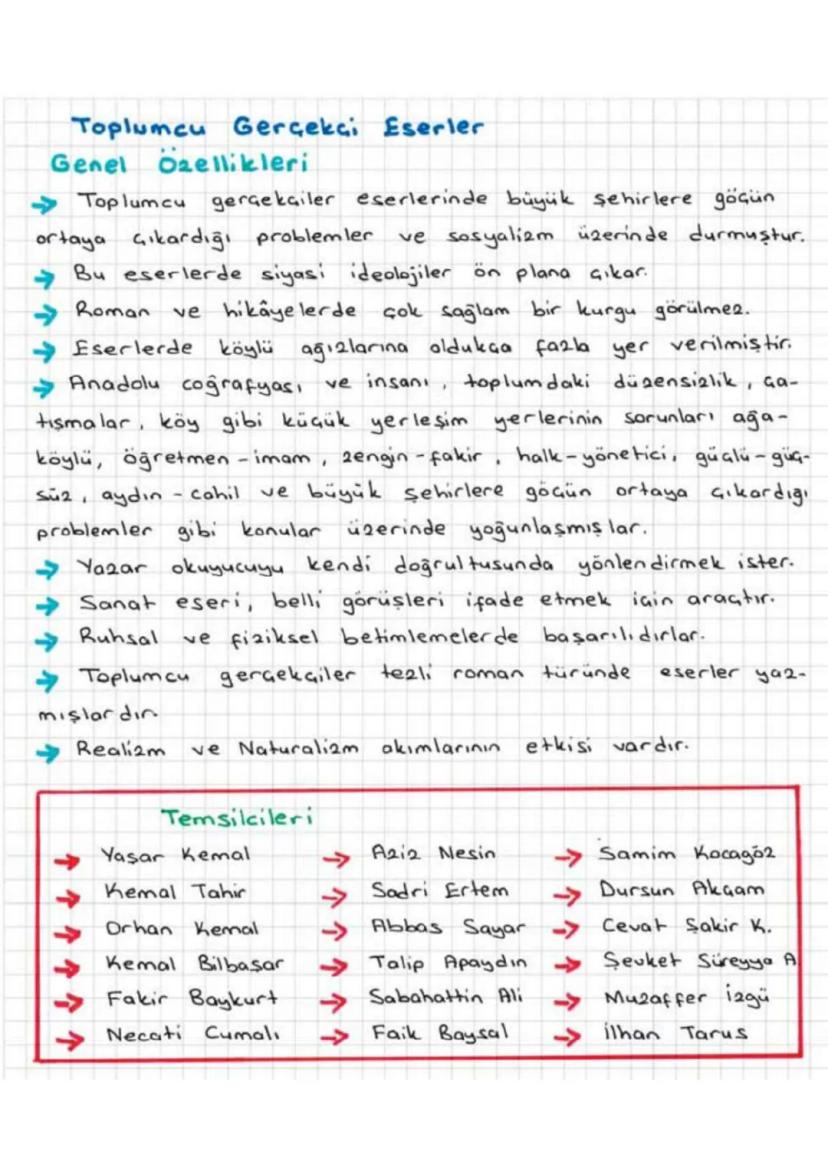 Toplumcu Gerçekçi Eserler
Genel Özellikleri
→ Toplumcu gerçekçiler eserlerinde büyük şehirlere göçün
ortaya çıkardığı problemler ve sosyalizm üzerinde durmuştur.
→ Bu eserlerde siyasi ideolojiler ön plana çıkar.
→ Roman ve hikâyelerde çok sağlam bir kurgu görülmez.
→ Eserlerde köylü ağızlarına oldukça fazla yer verilmiştir.
→ Anadolu coğrafyası ve insanı, toplumdaki düzensizlik, ça-
tışmalar, köy gibi küçük yerleşim yerlerinin sorunları ağa-
köylü, öğretmen-imam, zengin-fakir, halk-yönetici, güçlü-güç-
süz, aydın-cahil ve büyük şehirlere göçün ortaya çıkardığı
problemler gibi konular üzerinde yoğunlaşmışlar.
→ Yazar okuyucuyu kendi doğrultusunda yönlendirmek ister.
→ Sanat eseri, belli görüşleri ifade etmek için araçtır.
→ Ruhsal ve fiziksel betimlemelerde başarılıdırlar.
→ Toplumcu gerçekçiler tezli roman türünde eserler yaz-
mışlardır
→ Realizm ve Naturalizm akımlarının etkisi vardır.
Temsilcileri
→ Yaşar Kemal → Aziz Nesin → Samim Kocagöz
→ Kemal Tahir → Sadri Ertem → Dursun Akçam
→ Orhan Kemal → Abbas Sayar → Cevat Şakir K.
→ Kemal Bilbaşar → Talip Apaydın → Şevket Süreyya A
→ Fakir Baykurt → Sabahattin Ali → Muzaffer İzgü
→ Necati Cumalı → Faik Baysal → İlhan Tarus